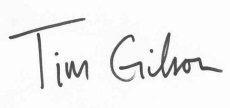 Tim Gilson